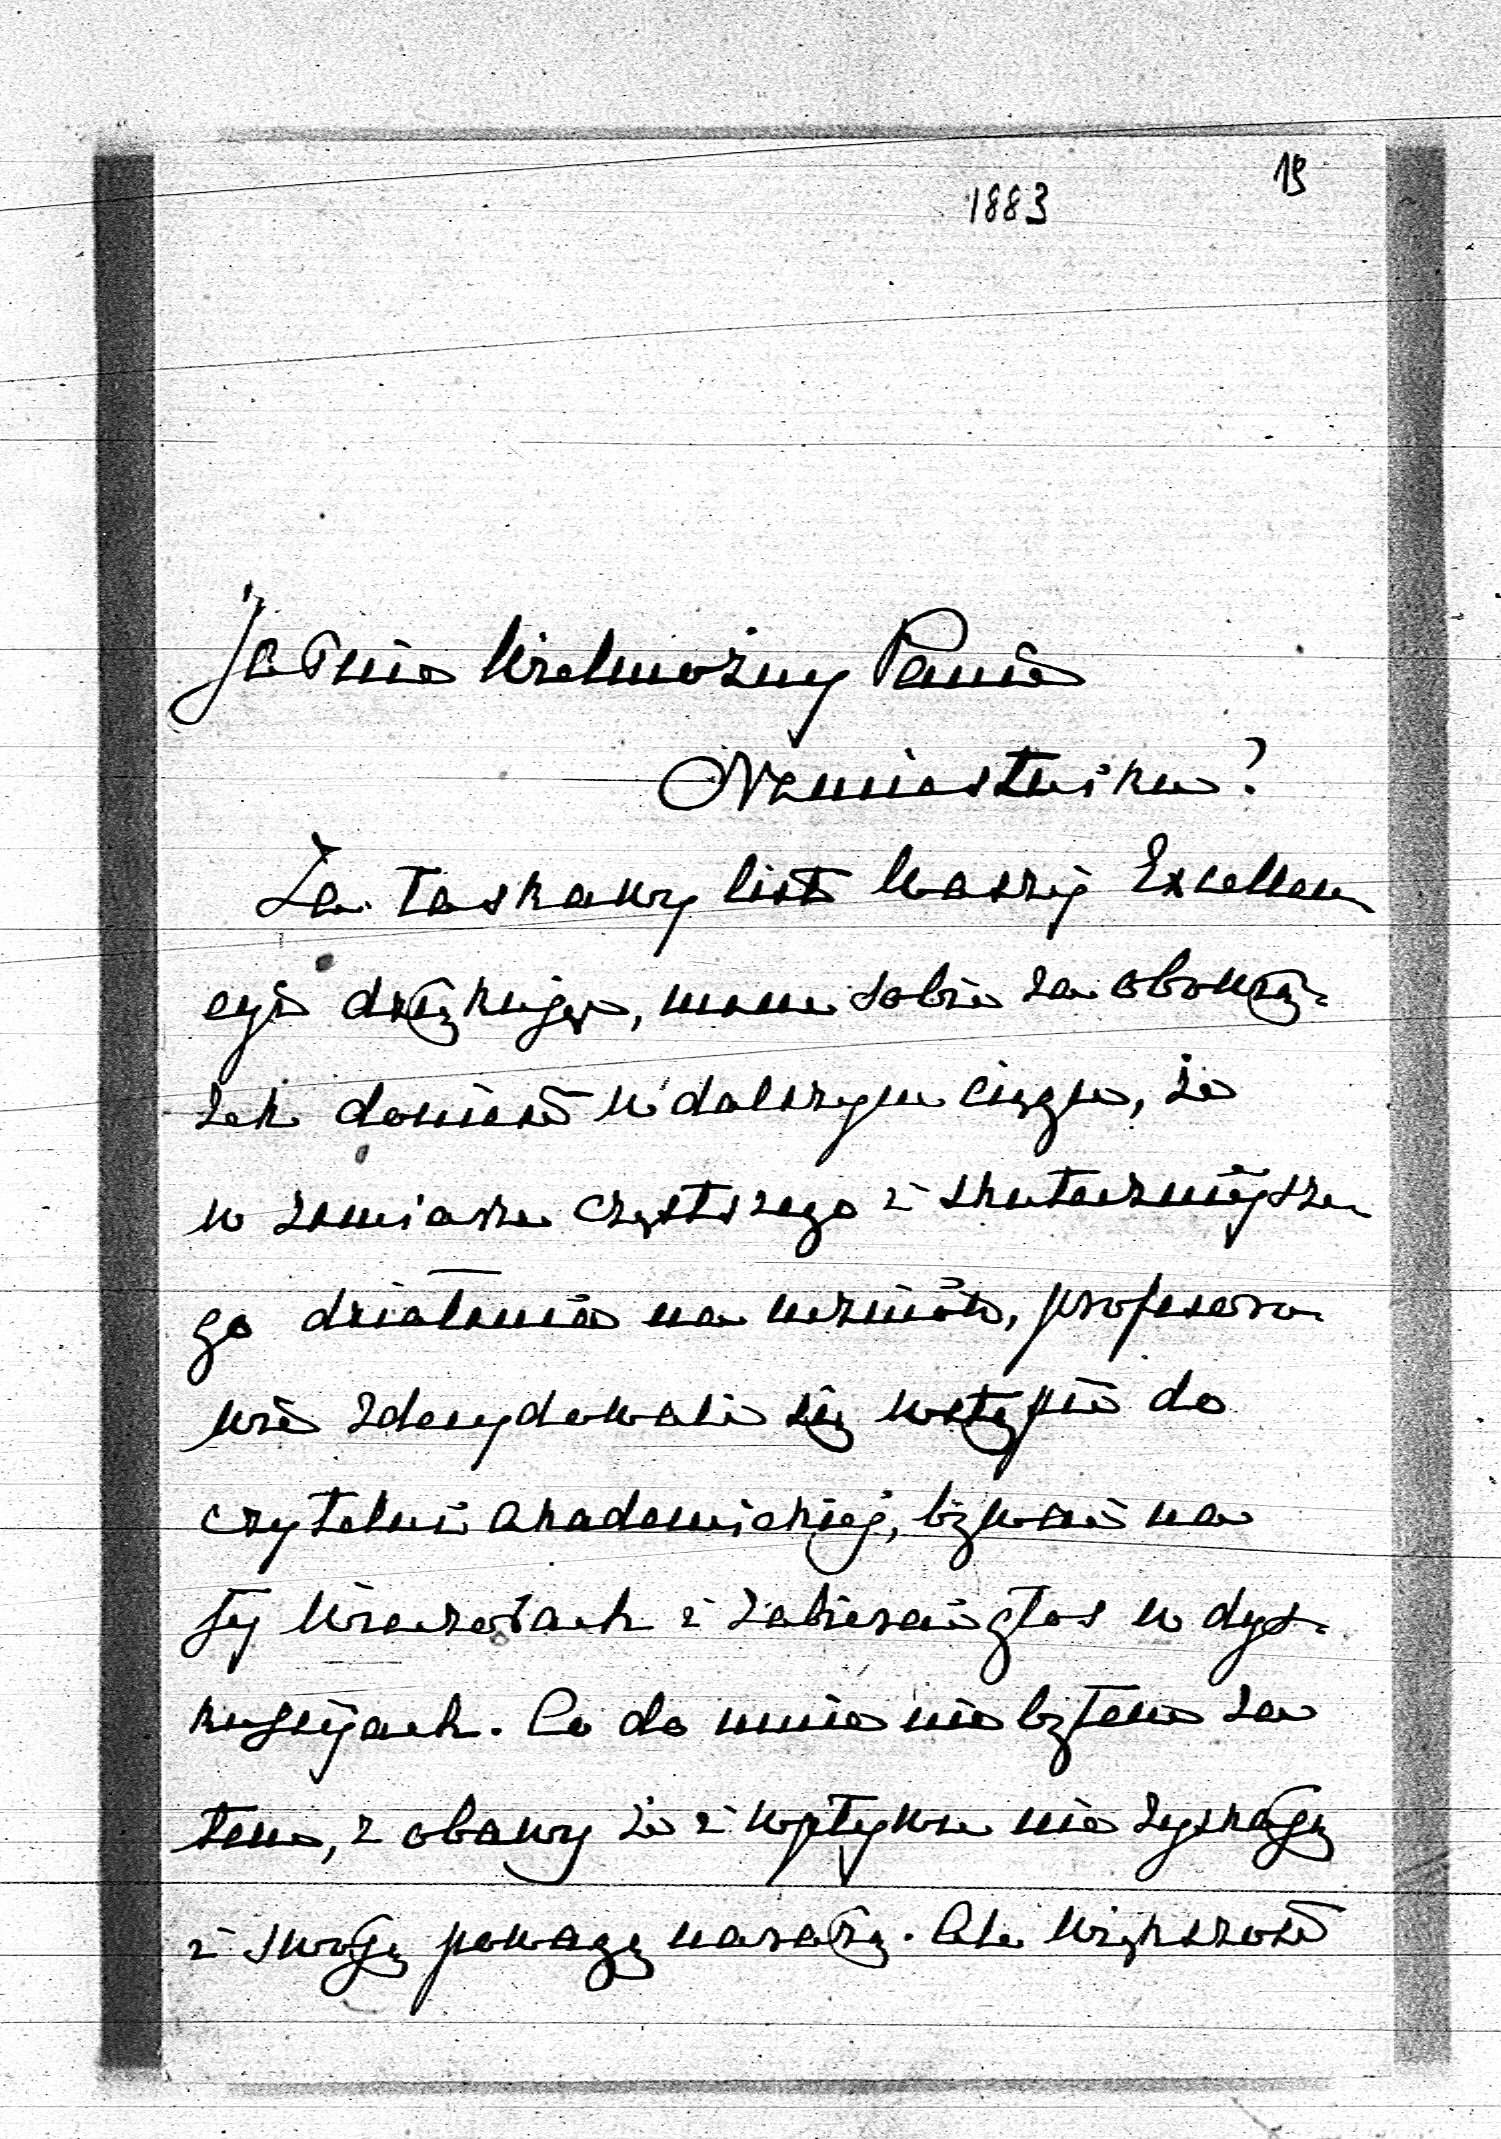 1883
19
Jaśnie Wielmożny Panie
Namiestniku!
Za łaskawy list Waszej Excellen
cyi dziękując, mam sobie za obowią-
zek donieść w dalszym ciągu, że
w zamiarze częstszego i skuteczniejsze
go działania na uczniów, profesoro
wie zdecydowali się wstąpić do
czytelni akademickiej, bywać na
jej wieczorach i zabierać głos w dys-
kusyjach. Co do mnie nie byłem za
tem, z obawy że i wpływu nie zyskają
i swoją powagę narażą. Ale większość